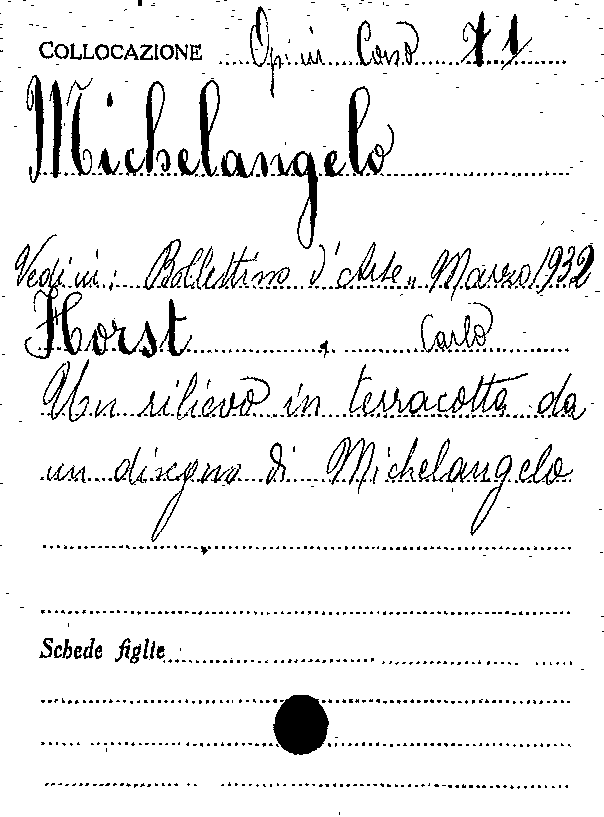 COLLOCAZIONE Opini Cons 71
Michelangelo
Vedi in: Bollettino d'Arte„ Marzo 1932
Horst, Carlo
Un rilievo in terracotta da
un disegno di Michelangelo
Schede figlie